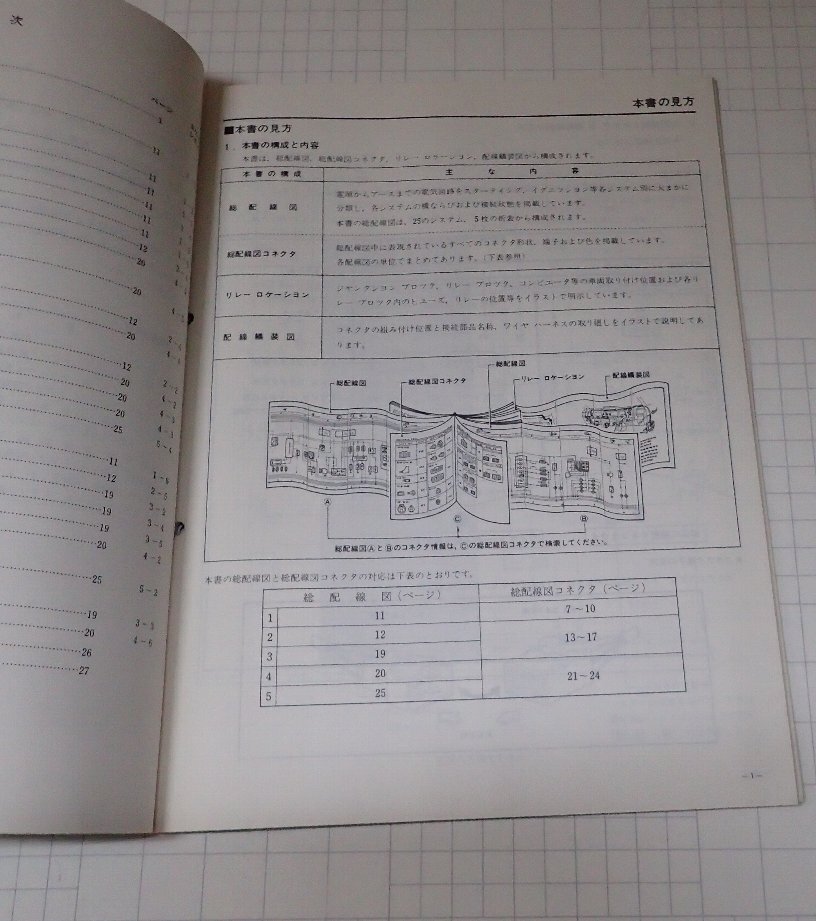 次
ページ
1
12
11
11
11
11
12
20
12
20
12
20
20
20
25
11
12
19
19
19
20
25
19
20
26
27
2-2
4-2
4-3
4-3
5-4
1-6
2-5
3-2
3-4
3-5
4-2
5-2
3-3
4-6
本書の見方
■本書の見方
1．本書の構成と内容
本書は、総配線図、総配線図コネクタ、リレー ロケーション、配線艤装図から構成されます。
本書の構成 主な内容
総配線図
電源からアースまでの電気回路をスターティング、イグニッション等各システム別に大まかに
分類し、各システムの横ならびおよび接続状態を掲載しています。
本書の総配線図は、25のシステム、5枚の折表から構成されます。
総配線図コネクタ
総配線図中に表現されているすべてのコネクタ形状、端子および色を掲載しています。
各配線図の単位でまとめてあります。（下表参照）
リレー ロケーション
ジャンクション ブロック、リレー ブロック、コンピュータ等の車両取り付け位置および各リ
レー ブロック内のヒューズ、リレーの位置等をイラストで明示しています。
配線艤装図
コネクタの組み付け位置と接続部品名称、ワイヤ ハーネスの取り廻しをイラストで説明してあ
ります。
総配線図
総配線図コネクタ
総配線図
リレー ロケーション
配線艤装図
Ⓐ
Ⓒ
Ⓑ
総配線図ⒶとⒷのコネクタ情報は、Ⓒの総配線図コネクタで検索してください。
本書の総配線図と総配線図コネクタの対応は下表のとおりです。
総配線図（ページ） 総配線図コネクタ（ページ）
1 11 7～10
2 12 13～17
3 19
4 20 21～24
5 25
－1－